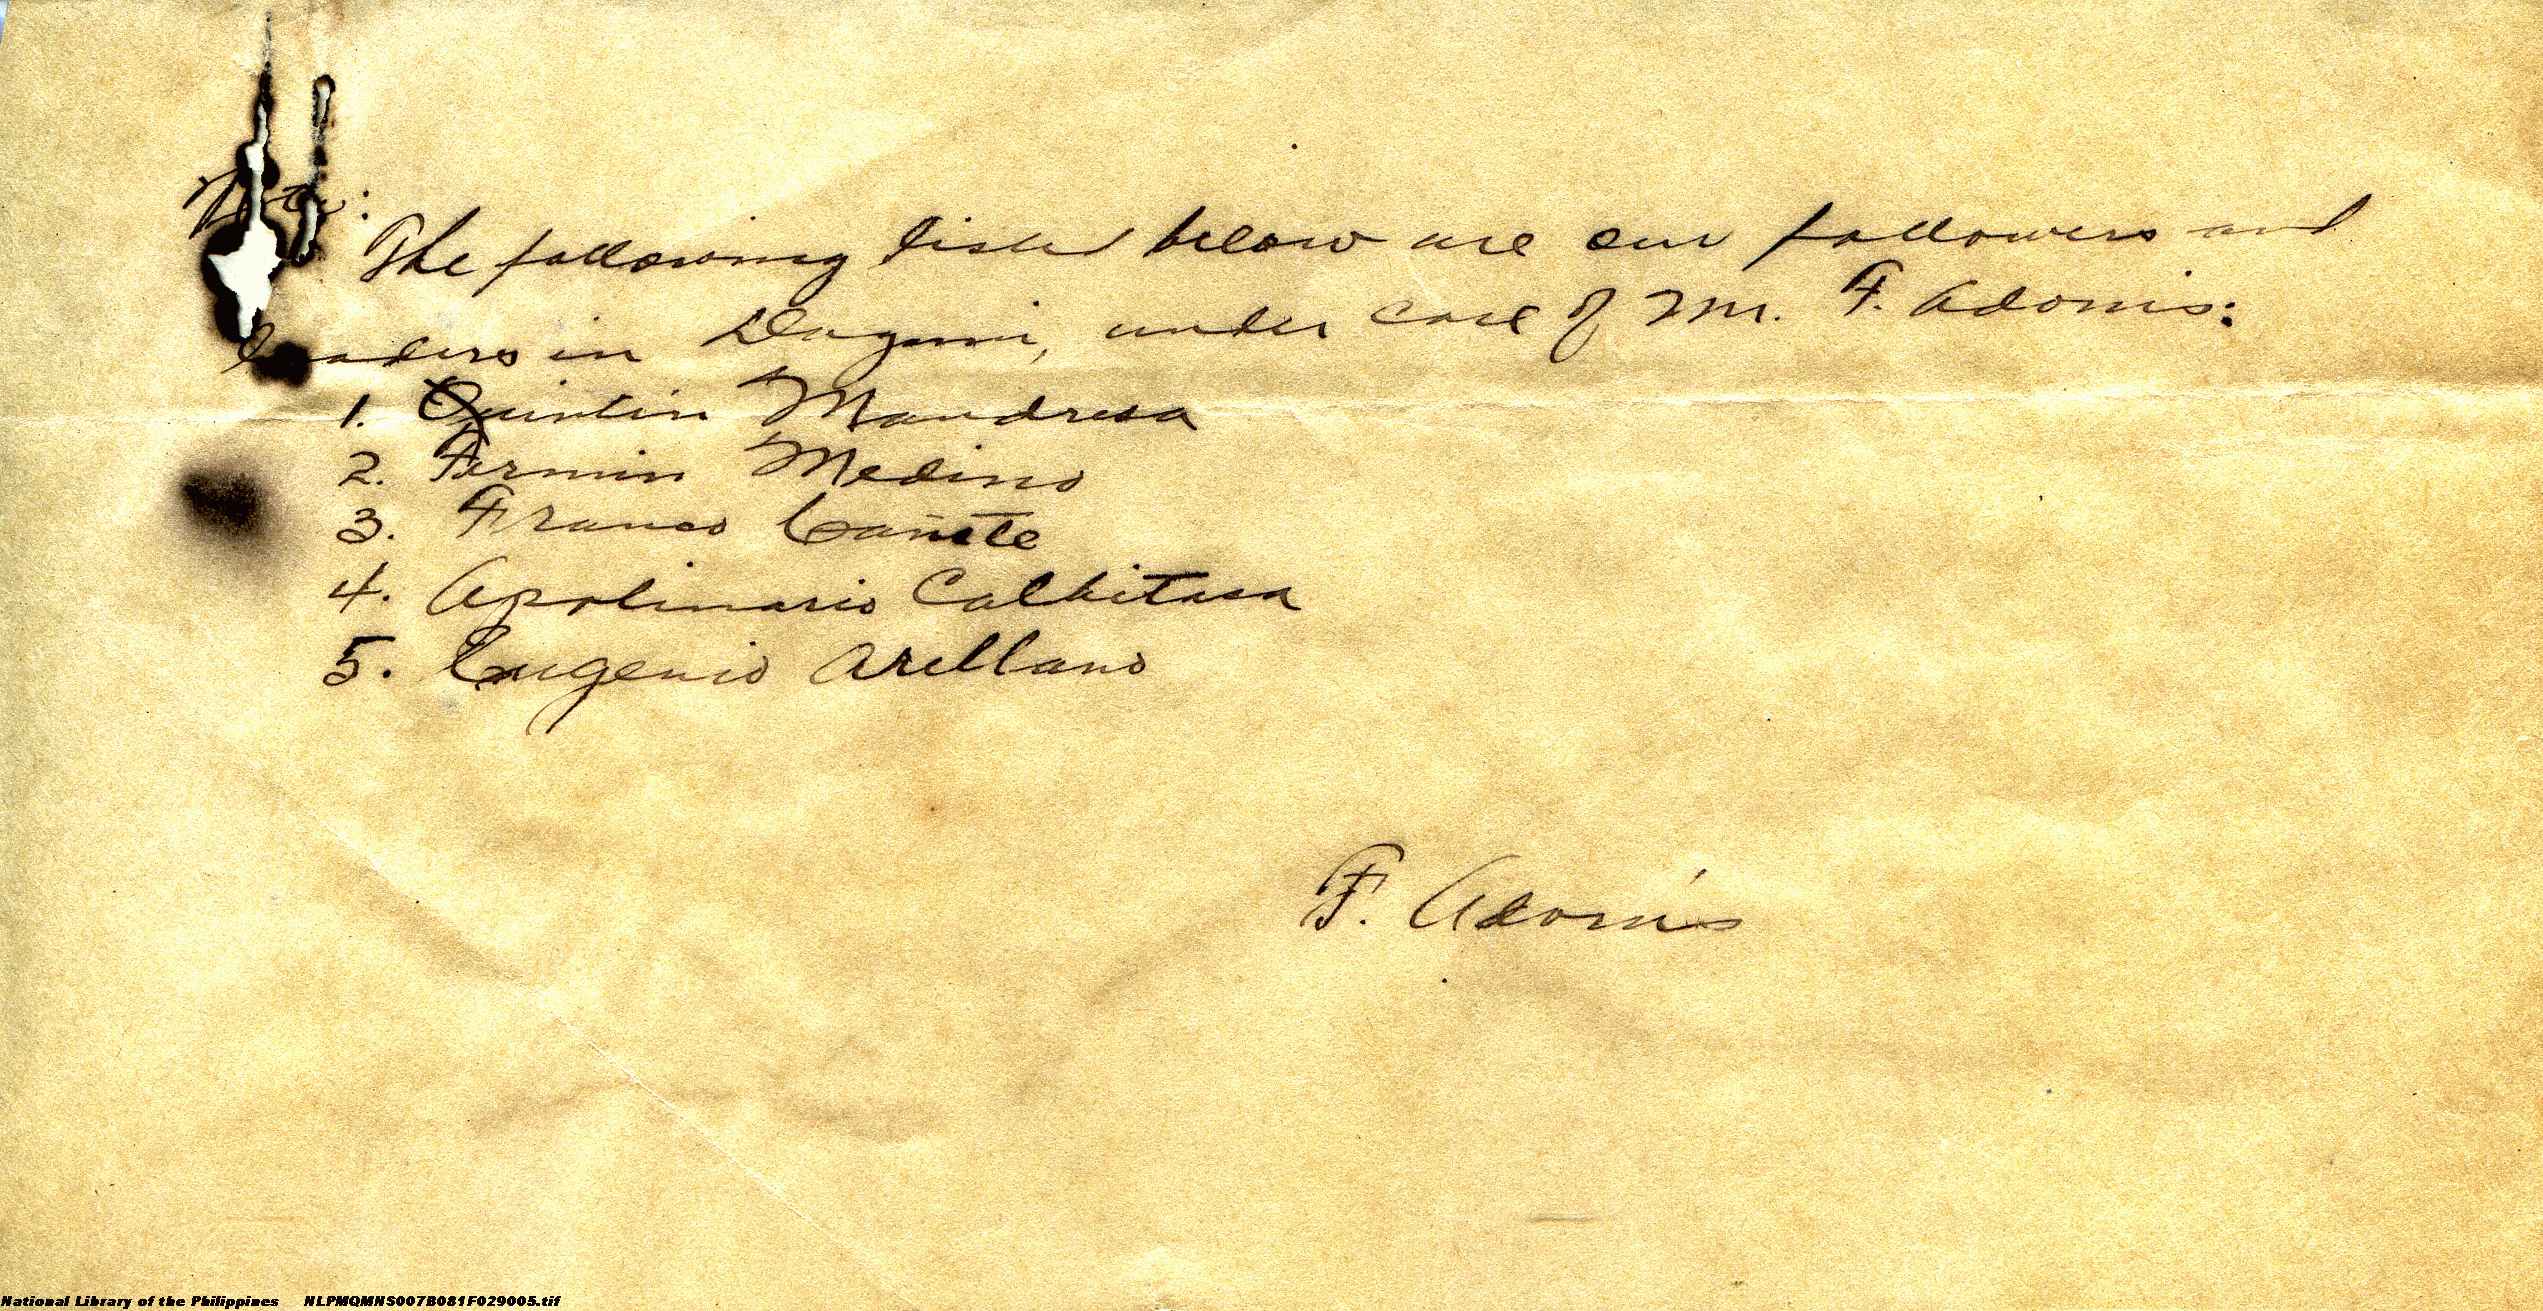 Note:
The following listed below are our followers and
leaders in Dagami, under care of Mr. F. Adonis:
1. Quintin Mandresa
2. Fermin Medino
3. Franco Cañete
4. Apolinario Calbitasa
5. Eugenio Arellano
F. Adonis
National Library of the Philippines NLPMQMNS007B081F029005.tif